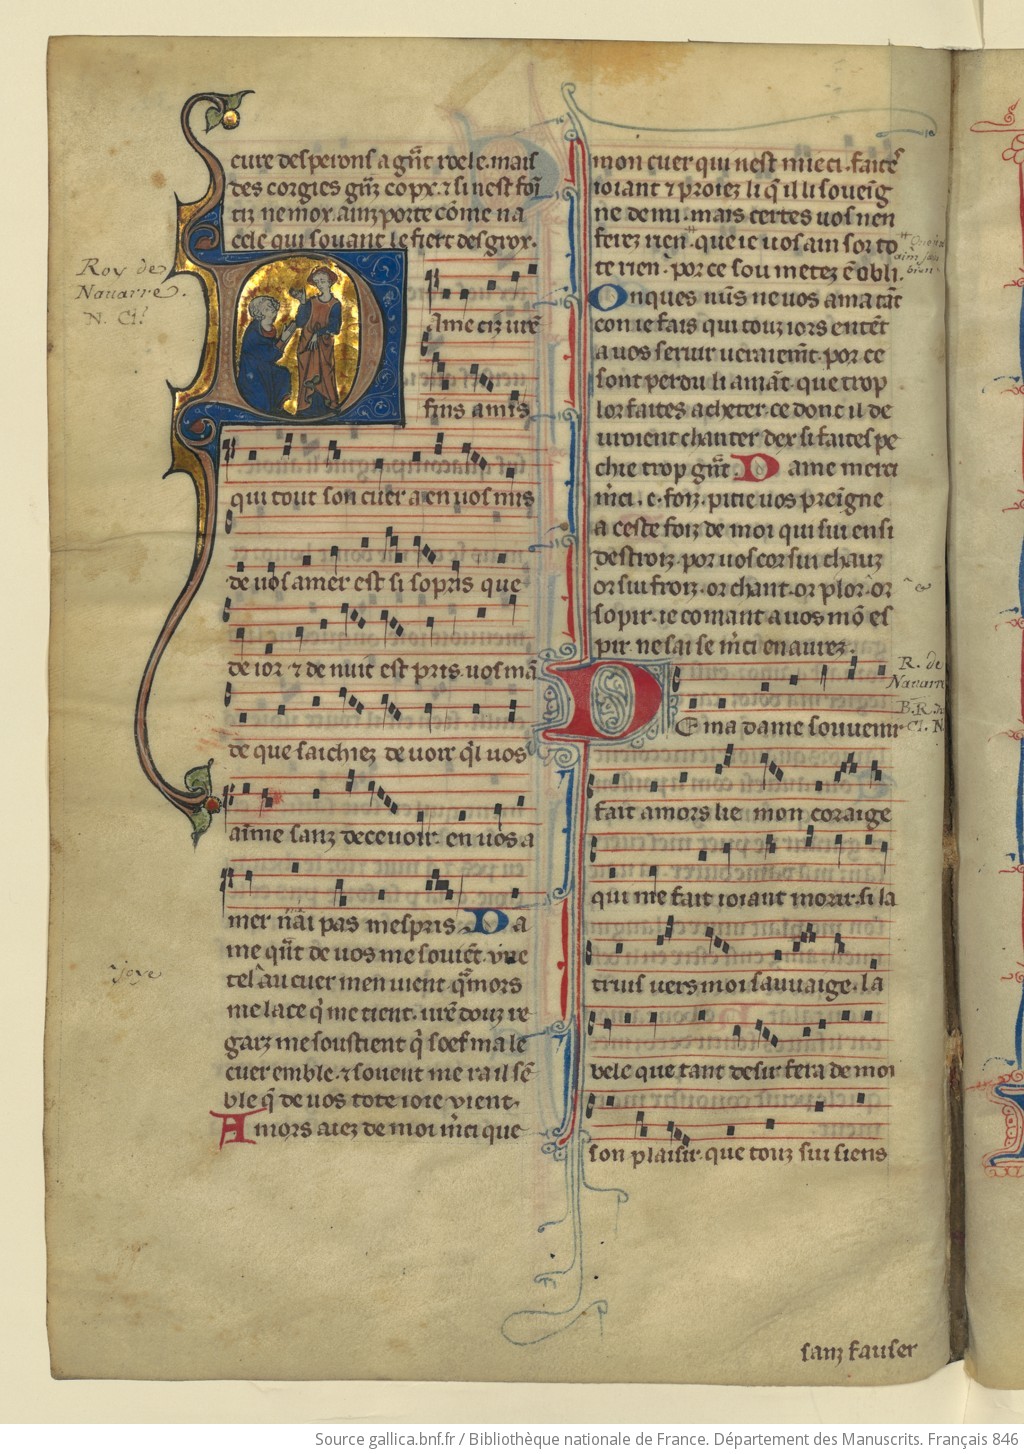 cure desperons a gñt roele. mais
des corgies gñz copx. ⁊ si nest foĩ
tiz ne mox. ainz porte cõme na
cele qui souant se fiert des grox.
Roy de
Nauarre.
N. Cl.
Dame ciz urẽ
fins amis
qui tout son cuer a en uos mis
de uos amer est si sopris que
de ior ⁊ de nuit est pris. uos mã
de que saichiez de uoir q̃l uos
aime sanz deceuoir. en uos a
mer nãi pas mespris. Da
me qñt de uos me souiẽt. vne
tel au cuer men uient
^ioye
me lace q̃ me tient. urẽ douz re
garz me soustient q̃ soef ma le
cuer emble. ⁊ souent me
ble q̃ de uos tote ioie vient.
Amors aiez de moi m̃ci que
mon cuer qui nest mie ci. faites
ioiant ⁊ proiez li q̃ il li soueig
ne de mi. mais certes uos nen
ferez rien. que ie uos ain sor to
te rien. por ce sou metez ẽ obli.
Onques nũs ne uos ama tãt
con ie fais qui touz iors entẽt
a uos seruir ueraiem̃t. por ce
sont perdu li amãt. que trop
lor faites acheter. ce donc il de
uroient chanter. dex si faites pe
chie trop gñt. Dame merci
m̃ci. c. foiz. pitie uos preigne
a ceste foiz de moi qui sui ensi
destroiz. por uos cor sui chauz
or sui froiz. or chant. or plor. or
sopir. ie comant a uos mõ es
pir. ne sai se m̃ci en aurez.
R. de
Nauarre
B.R. de
Cl. N
De ma dame souuenir
fait amors lie mon coraige
qui me fait ioiant morir. si la
truis uers moi sauuaige. la
bele que tant desir fera de moi
son plaisir. que touz sui siens
sanz fauser
Source gallica.bnf.fr / Bibliothèque nationale de France. Département des Manuscrits. Français 846